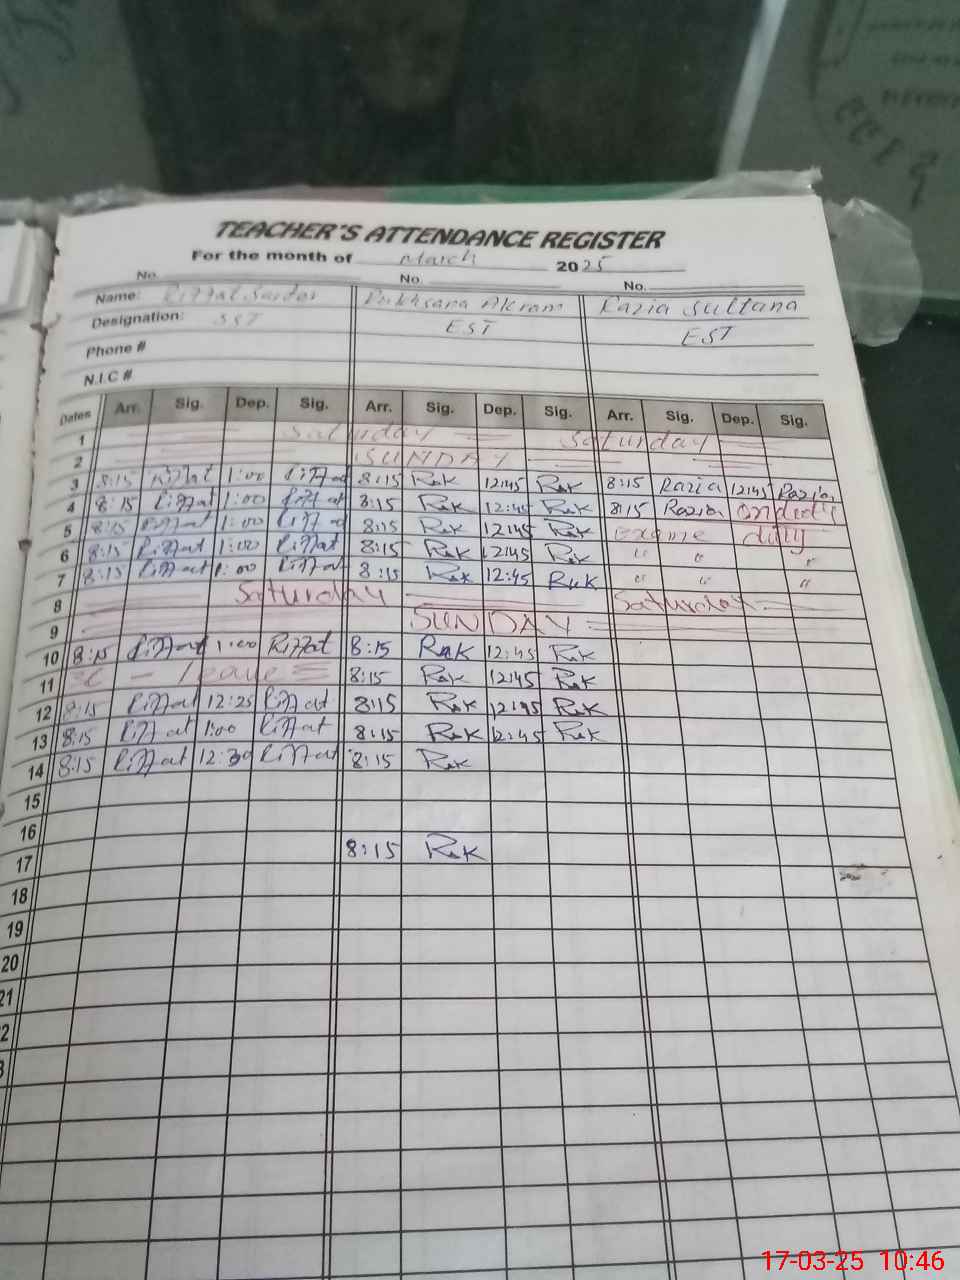 TEACHER'S ATTENDANCE REGISTER
For the month of March 2025
No. No. No.
Name: Riffat Sardar Rukhsana Akram Razia Sultana
Designation: SST EST EST
Phone #
N.I.C #
Dates Arr. Sig. Dep. Sig. Arr. Sig. Dep. Sig. Arr. Sig. Dep. Sig.
1 Saturday Saturday
2 SUNDAY
3 8:15 Riffat 1:00 Riffat 8:15 RuK 12:45 RuK 8:15 Razia 12:45 Razia
4 8:15 Riffat 1:00 Riffat 8:15 RuK 12:45 RuK 8:15 Razia on duty
5 8:15 Riffat 1:00 Riffat 8:15 RuK 12:45 RuK exame duty
6 8:15 Riffat 1:00 Riffat 8:15 RuK 12:45 RuK " " "
7 8:15 Riffat 1:00 Riffat 8:15 RuK 12:45 RuK " " "
8 Saturday Saturday
9 SUNDAY
10 8:15 Riffat 1:00 Riffat 8:15 RuK 12:45 RuK
11 – leave 8:15 RuK 12:45 RuK
12 8:15 Riffat 12:25 Riffat 8:15 RuK 12:45 RuK
13 8:15 Riffat 1:00 Riffat 8:15 RuK 12:45 RuK
14 8:15 Riffat 12:30 Riffat 8:15 RuK
15
16
17 8:15 RuK
18
19
20
21
2
3
17-03-25 10:46